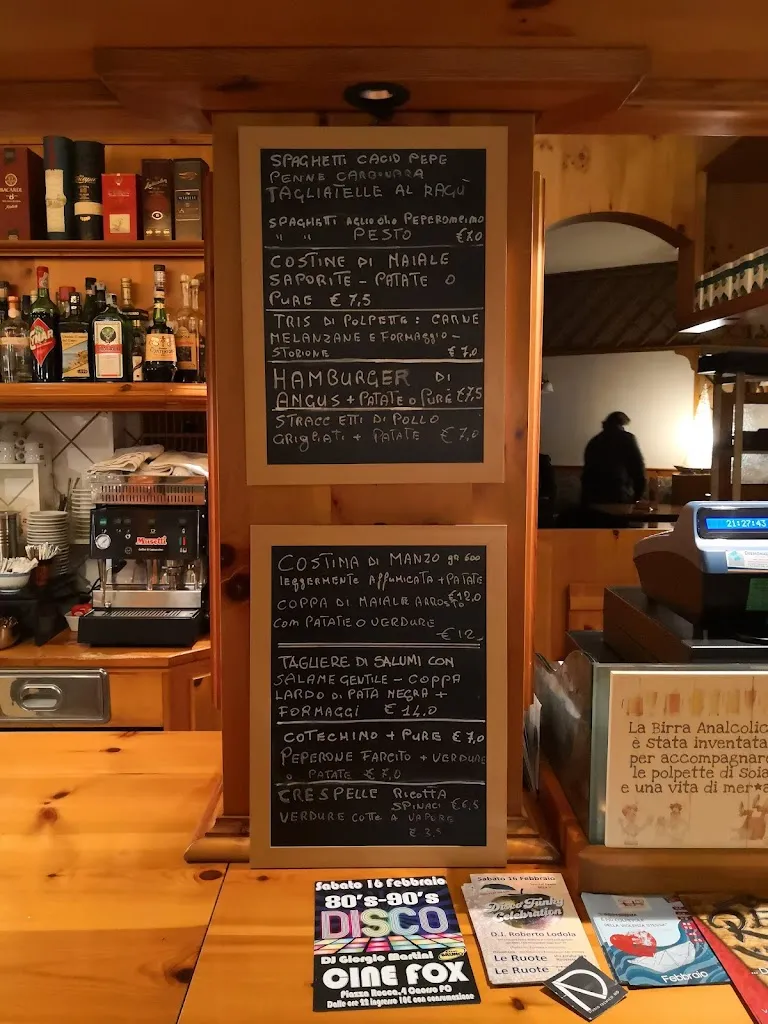 SPAGHETTI CACIO PEPE
PENNE CARBONARA
TAGLIATELLE AL RAGÙ
SPAGHETTI AGLIO OLIO PEPERONCINO
" " PESTO €7,0
COSTINE DI MAIALE
SAPORITE - PATATE O
PURE € 7,5
TRIS DI POLPETTE: CARNE
MELANZANE E FORMAGGIO -
STORIONE € 7,0
HAMBURGER DI
ANGUS + PATATE O PURE €7,5
STRACCETTI DI POLLO
GRIGLIATI + PATATE € 7,0
COSTINA DI MANZO gr 600
leggermente AFFUMICATA + PATATE
€12,0
COPPA DI MAIALE ARROSTO
COM PATATE O VERDURE
€ 12,
TAGLIERE DI SALUMI CON
SALAME GENTILE - COPPA
LARDO DI PATA NEGRA +
FORMAGGI € 14,0
COTECHINO + PURE € 7,0
PEPERONE FARCITO + VERDURE
O PATATE € 7,0
CRESPELLE RICOTTA
SPINACI € 6,5
VERDURE COTTE A VAPORE
€ 3,5
BACARDI
Musetti
21:27:43
La Birra Analcolic
è stata inventata
per accompagnare
le polpette di soia
e una vita di mer★a
Sabato 16 Febbraio
80's-90's
DISCO
DJ Giorgio Martini
CINE FOX
Piazza Rocca,4 Caorso PC
Dalle ore 22 ingresso 10€ con consumazione
Sabato 16 Febbraio
Disco Funky
Celebration
D.J. Roberto Lodola
Le Ruote
Le Ruote
Febbraio